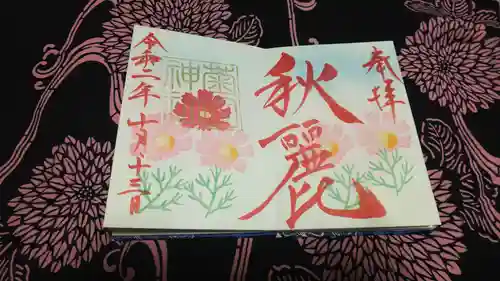 奉拝
秋麗
令和二年十月十三日